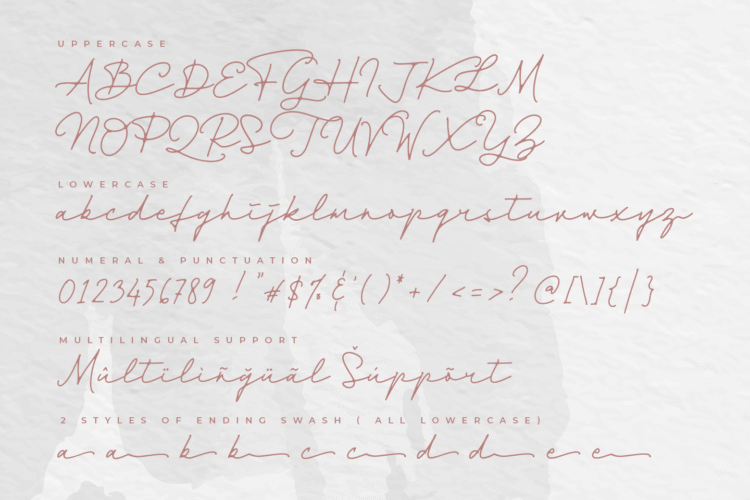 UPPERCASE
ABCDEFGHIJKLM
NOPQRSTUVWXYZ
LOWERCASE
abcdefghijklmnopqrstuvwxyz
NUMERAL & PUNCTUATION
0123456789 ! "#$%&'()*+/<=>?@[\]{|}
MULTILINGUAL SUPPORT
Mûltïliñğüãl Šúppõrt
2 STYLES OF ENDING SWASH ( ALL LOWERCASE)
a a b b c c d d e e